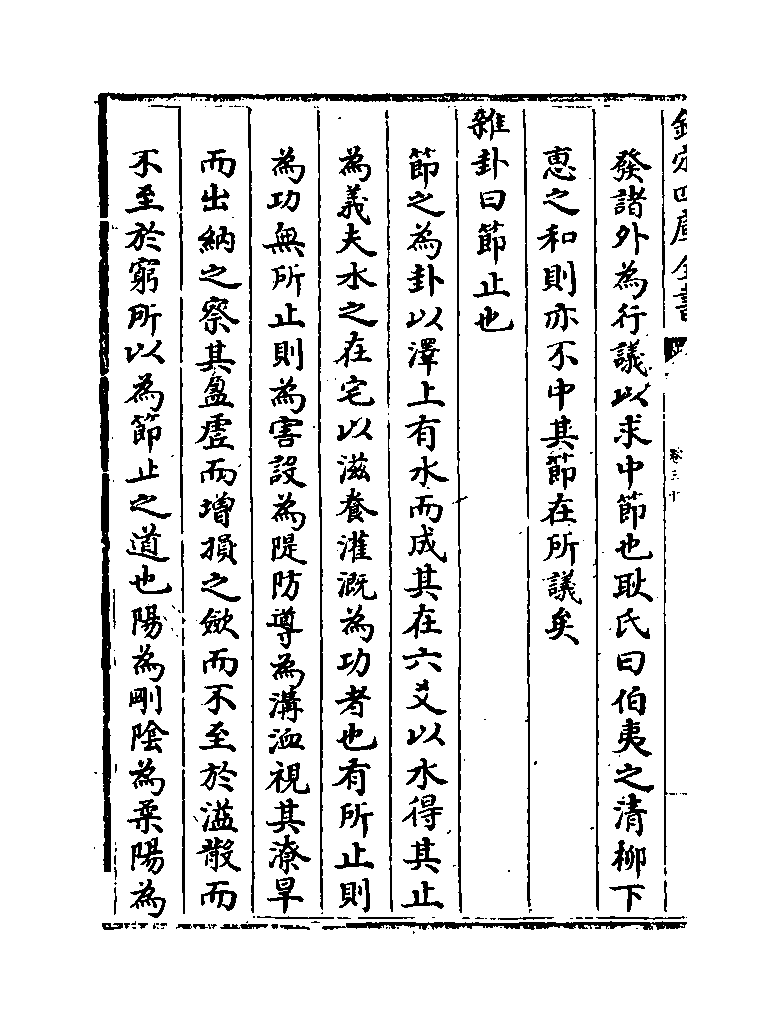 欽定四庫全書
卷三十
發諸外為行議以求中節也耿氏曰伯夷之清柳下
惠之和則亦不中其節在所議矣
雜卦曰節止也
節之為卦以澤上有水而成其在六爻以水得其止
為義夫水之在宅以滋養灌溉為功者也有所止則
為功無所止則為害設為隄防導為溝洫視其潦旱
而出納之察其盈虛而增損之斂而不至於溢散而
不至於窮所以為節止之道也陽為剛陰為柔陽為